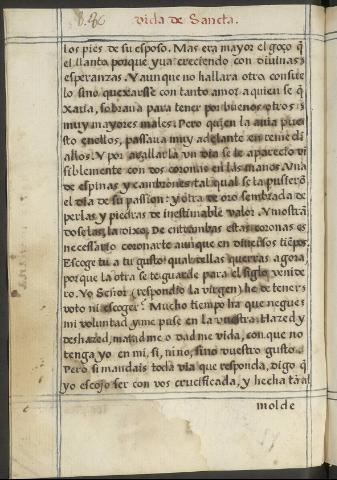 vida de Sancta.
los pies de su esposo. Mas era mayor el goço q̃
el llanto, porque yva creciendo con divinas
esperanzas. Y aunque no hallara otro consue
lo sino quexarse con tanto amor a quien se q̃
xava, sobrava para tener por buenos otros
muy mayores males. Pero quien la avia pues
to en ellos, passava muy adelante en
allos. Y por un dia se le aparecio vi
siblemente con dos coronas en las manos. Una
de espinas y cambrones tal qual se la pusierõ
el dia de su passion: y otra de oro sembrada de
perlas y piedras de inestimable valor. Y mostrã
doselas, la dixo. De entrambas estas coronas es
necessario coronarte aunque en diversos tiẽpos.
Escoge tu a tu gusto qual dellas querras agora,
porque la otra se te guarde para el siglo venide
ro. Yo Señor (respondio la virgen) he de tener
voto ni escoger? Mucho tiempo ha que negue
mi voluntad y me puse en la vuestra. Hazed y
deshazed, matadme o dadme vida, con que no
tenga yo en mi, si, ni no, sino vuestro gusto.
Pero si mandais toda via que responda, digo q̃
yo escojo ser con vos crucificada, y hecha tã al
molde